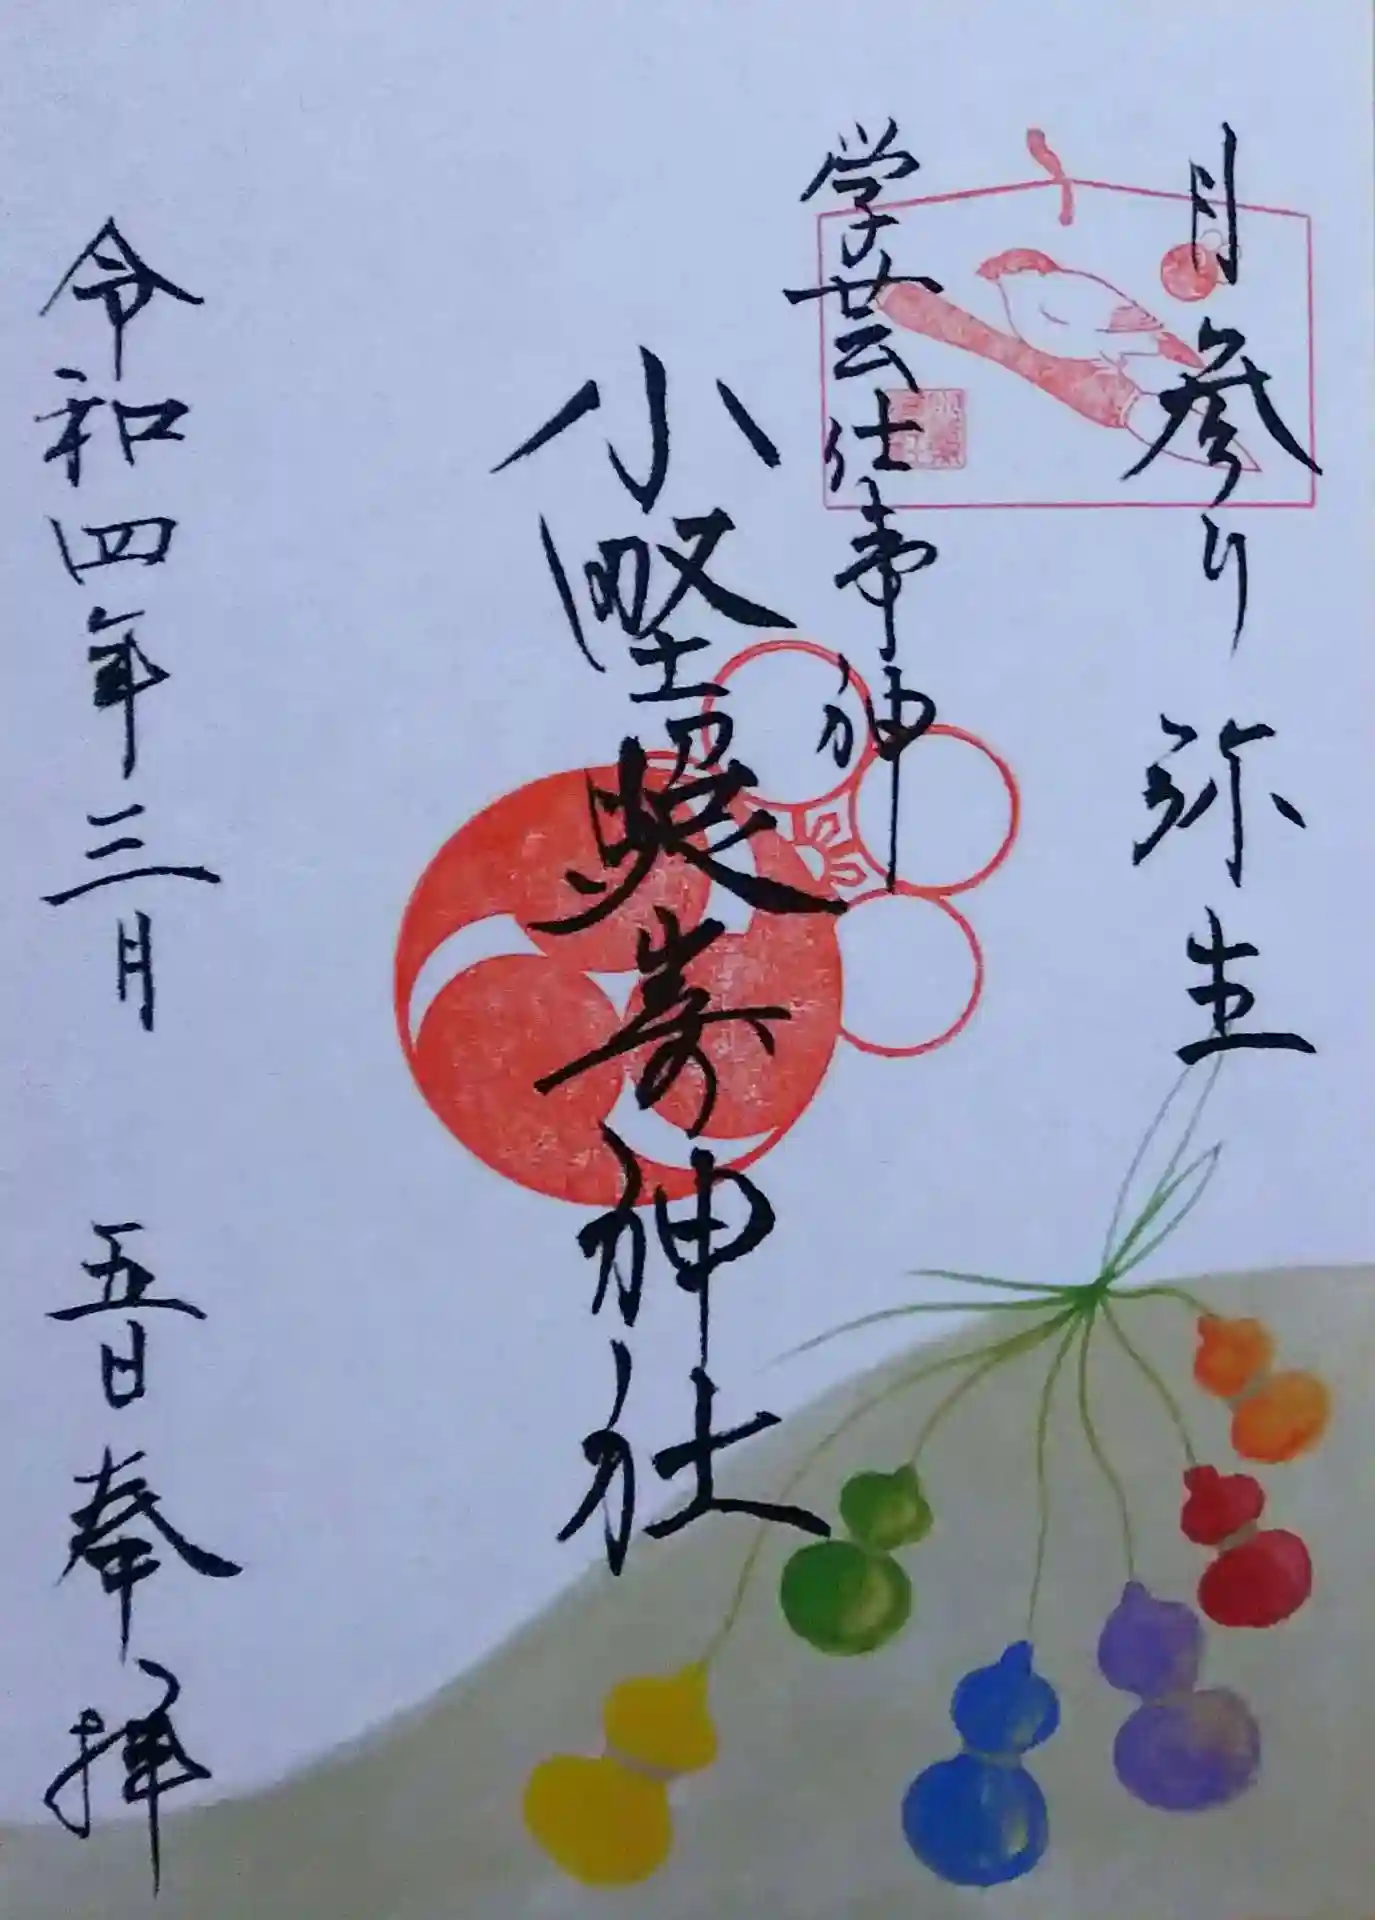 月参り 弥生
学芸仕事神
小野照嵜神社
令和四年三月 五日奉拝